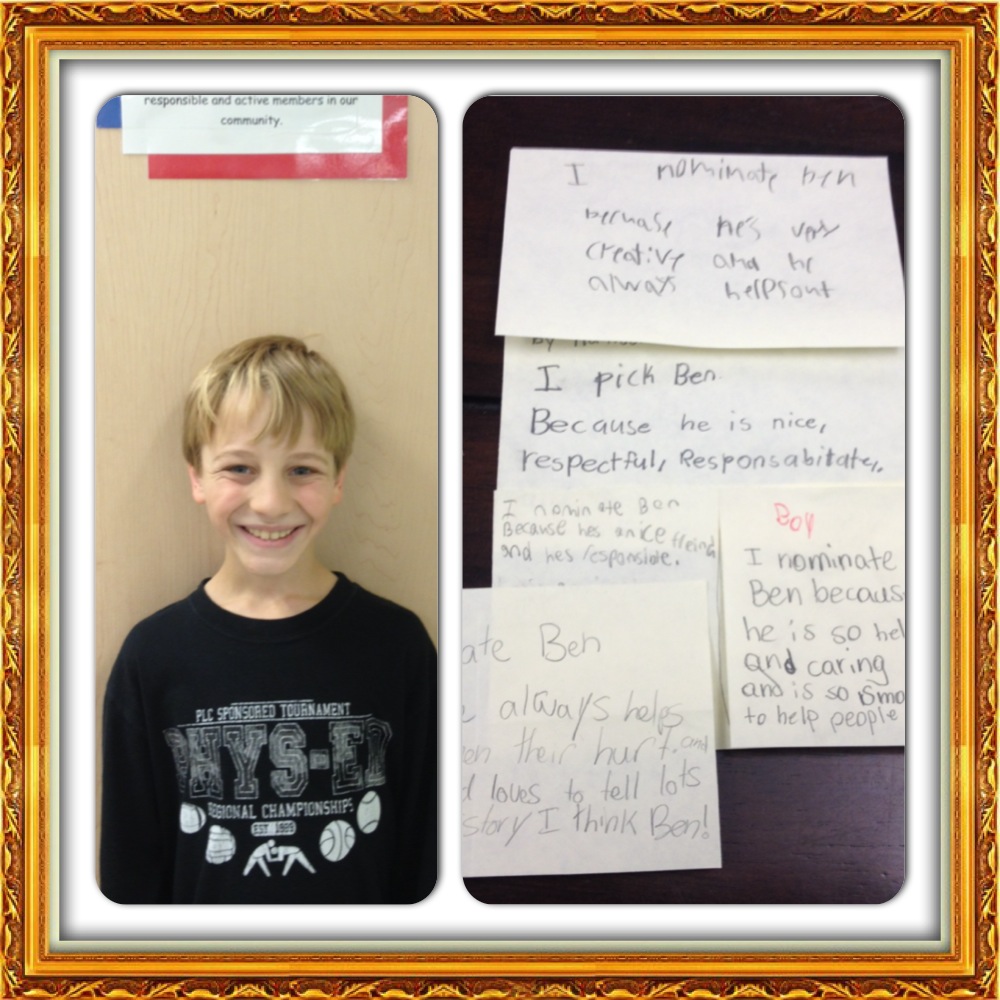 responsible and active members in our
community.
PLC SPONSORED TOURNAMENT
PHYS-ED
REGIONAL CHAMPIONSHIPS
EST 1985
I nominate ben
becuase he's very
creative and he
always helpsout
by
I pick Ben.
Because he is nice,
respectful, Responsabitatey.
I nominate Ben
Because hes a nice
and hes responsible.
Boy
I nominate
Ben becaus
he is so hel
and caring
and is so smo
to help people
ate Ben
always helps
en their hurt. and
d loves to tell lots
story I think Ben!